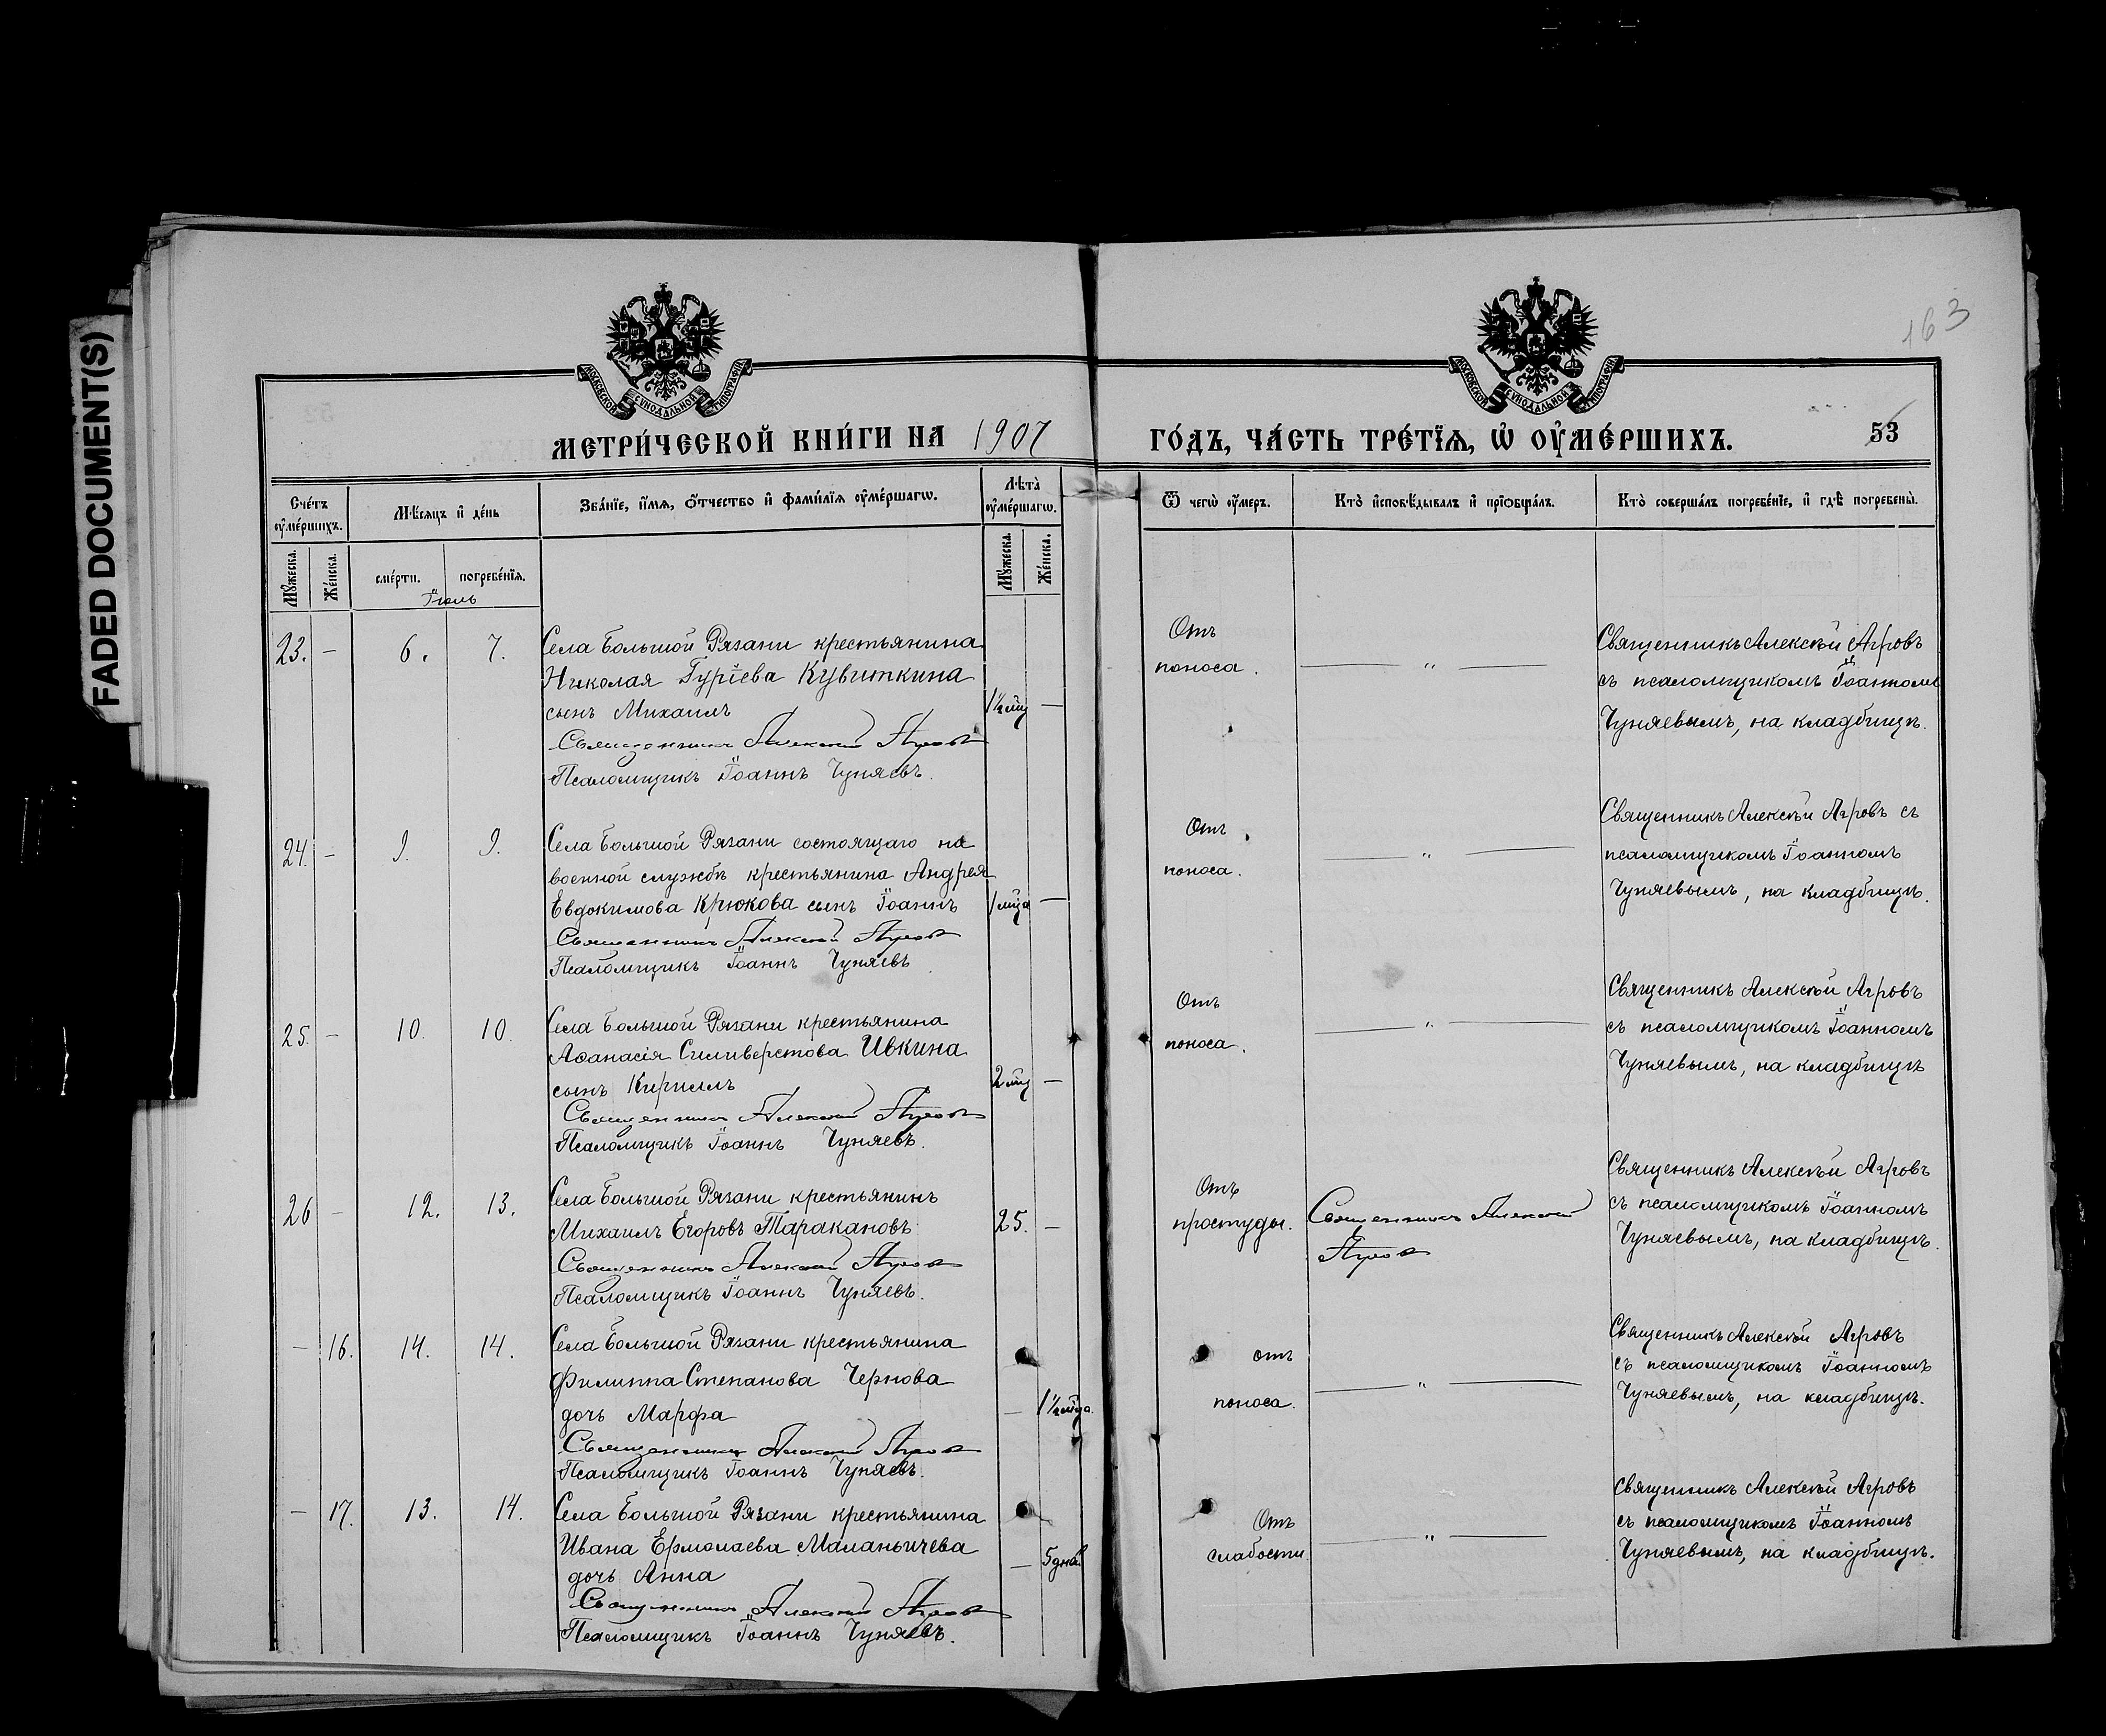 FADED DOCUMENT(S)
163
МОСКОВСКОЙ СѴНОДАЛЬНОЙ ТИПОГРАФІИ
МОСКОВСКОЙ СѴНОДАЛЬНОЙ ТИПОГРАФІИ
МЕТРИ́ЧЕСКОЙ КНИ́ГИ НА 1907
ГО́ДЪ, ЧА́СТЬ ТРЕ́ТЇѦ, Ѡ҆ ОУ҆МЕ́РШИХЪ.
53
Сче́тъ оу҆ме́ршихъ.
Мꙋ́жеска.
Же́нска.
Мѣ́сѧцъ и҆ де́нь
сме́рти.
погребе́нїѧ.
Іюль
Зва́нїе, и҆́мѧ, ѻ҆́тчество и҆ фами́лїѧ оу҆ме́ршагѡ.
Лѣта̀ оу҆ме́ршагѡ.
Мꙋ́жеска.
Же́нска.
Ѿ чегѡ̀ оу҆́меръ.
Кто̀ и҆сповѣ́дывалъ и҆ прїѡбща́лъ.
Кто̀ соверша́лъ погребе́нїе, и҆ гдѣ̀ погребены̀.
23. – 6. 7.
Села Большой Рязани крестьянина
Николая Гуріева Кувиткина
сынъ Михаилъ
1½ мц –
Священникъ Алексѣй Агровъ
Псаломщикъ Іоаннъ Чуняевъ.
Отъ
поноса.
— „ —
Священникъ Алексѣй Агровъ
съ псаломщикомъ Іоанномъ
Чуняевымъ, на кладбищѣ.
24. – 9. 9.
Села Большой Рязани состоящаго на
военной службѣ крестьянина Андрея
Евдокимова Крюкова сынъ Іоаннъ
1 мца –
Священникъ Алексѣй Агровъ
Псаломщикъ Іоаннъ Чуняевъ
Отъ
поноса.
— „ —
Священникъ Алексѣй Агровъ съ
псаломщикомъ Іоанномъ
Чуняевымъ, на кладбищѣ.
25. – 10. 10
Села Большой Рязани крестьянина
Аѳанасія Силиверстова Ивкина
сынъ Кириллъ
2 мц –
Священникъ Алексѣй Агровъ
Псаломщикъ Іоаннъ Чуняевъ.
Отъ
поноса.
— „ —
Священникъ Алексѣй Агровъ
съ псаломщикомъ Іоанномъ
Чуняевымъ, на кладбищѣ
26 – 12. 13.
Села Большой Рязани крестьянинъ
Михаилъ Егоровъ Таракановъ
25. –
Священникъ Алексѣй Агровъ
Псаломщикъ Іоаннъ Чуняевъ.
Отъ
простуды.
Священникъ Алексѣй
Агровъ
Священникъ Алексѣй Агровъ
съ псаломщикомъ Іоанномъ
Чуняевымъ, на кладбищѣ.
– 16. 14. 14.
Села Большой Рязани крестьянина
Филиппа Степанова Чернова
дочь Марфа
– 1½ мца
Священникъ Алексѣй Агровъ
Псаломщикъ Іоаннъ Чуняевъ.
отъ
поноса.
— „ —
Священникъ Алексѣй Агровъ
съ псаломщикомъ Іоанномъ
Чуняевымъ, на кладбищѣ.
– 17. 13. 14.
Села Большой Рязани крестьянина
Ивана Ермолаева Маланьичева
дочь Анна
– 5 дней
Священникъ Алексѣй Агровъ
Псаломщикъ Іоаннъ Чуняевъ.
Отъ
слабости
— „ —
Священникъ Алексѣй Агровъ
съ псаломщикомъ Іоанномъ
Чуняевымъ, на кладбищѣ.